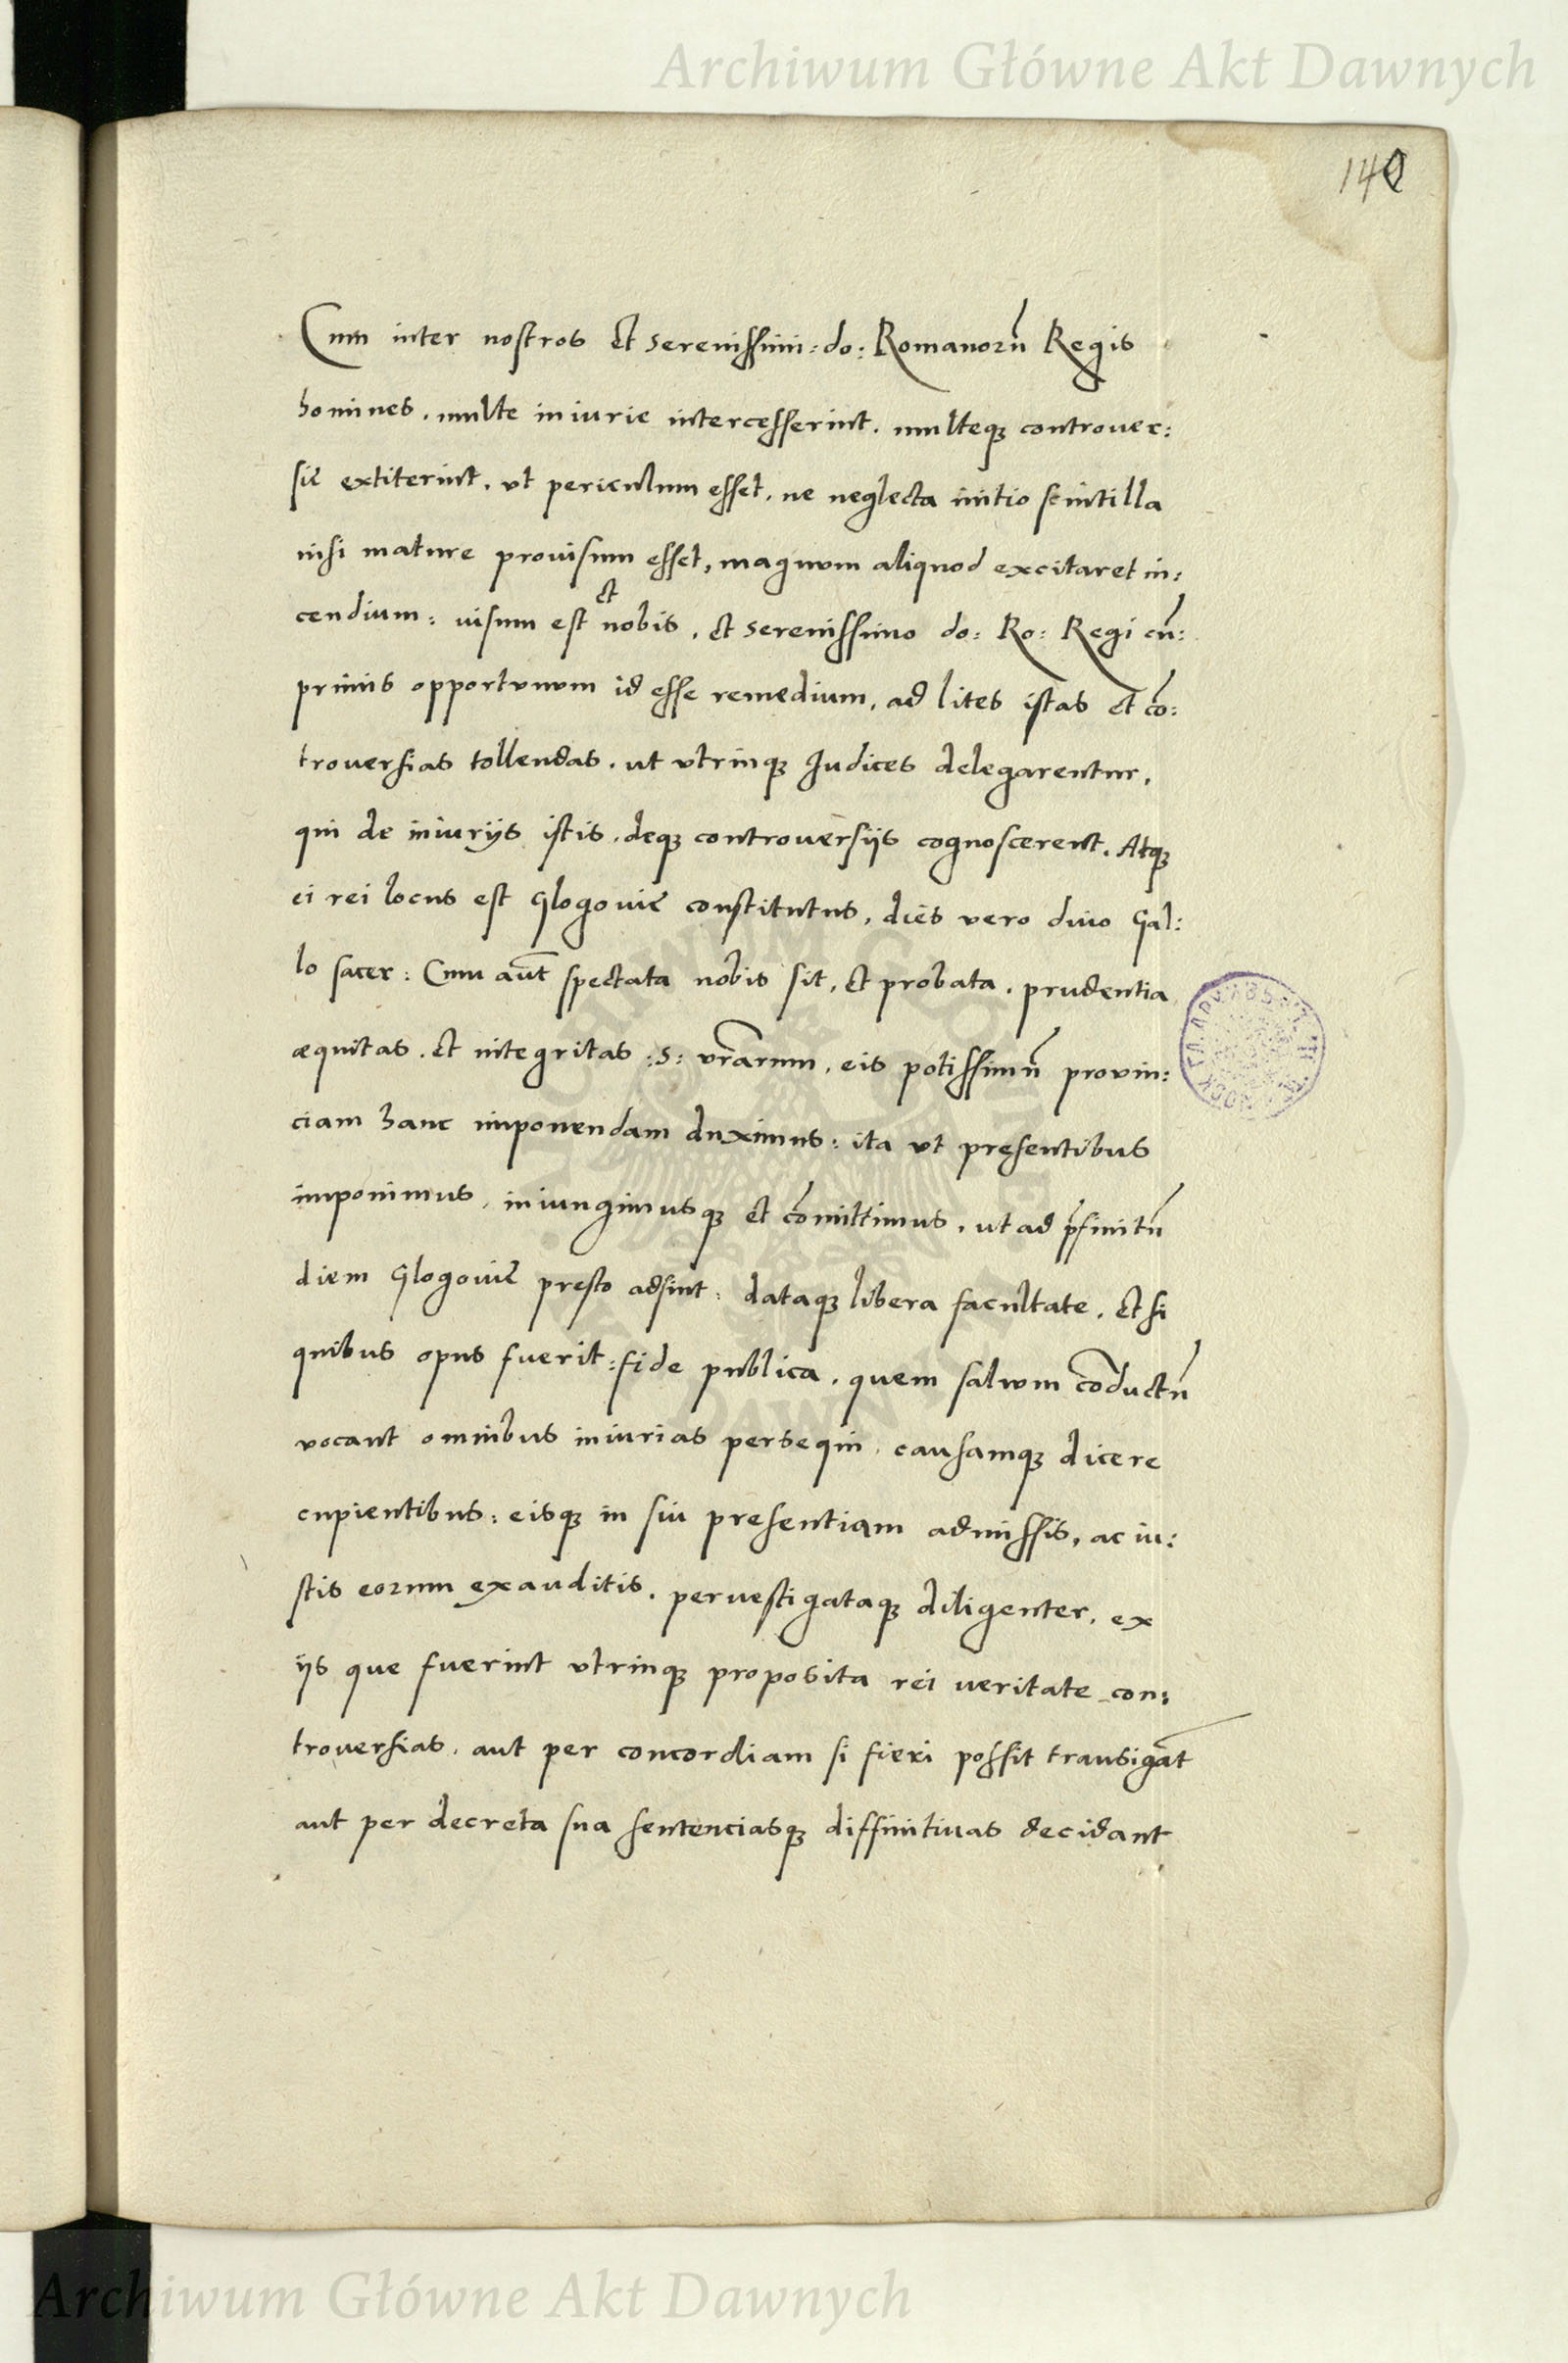 Archiwum Główne Akt Dawnych
140
Cum inter nostros et serenissimi: do: Romanorū Regis
homines. multe iniurie intercesserint. multeq̨ controuer:
się extiterint. vt periculum esset. ne neglecta initio scintilla
nisi mature prouisum esset, magnvm aliquod excitaret in:
et
cendium: uisum est nobis. et serenissimo do: Ro: Regi cū:
primis opportvnvm id esse remedium, ad lites istas et cō:
trouersias tollendas. ut vtrinq̨ Judices delegarentur,
qui de iniurijs istis. deq̨ controuersijs cognoscerent. Atq̨
ei rei locus est Glogouię constitutus, dies vero diuo Gal:
lo sacer: Cum aūt spectata nobis sit, et probata. prudentia
æquitas. et integritas :S: vr̄arum, eis potissimū provin:
ciam hanc imponendam duximus: ita vt pręsentibus
imponimus, iniungimusq̨ et cōmittimus, ut ad p̄finitū
diem Glogouię presto adsint: dataq̨ libera facultate. et si
quibus opus fuerit: fide publica. quem salvvm cōductū
vocant omnibus iniurias persequi, causamq̨ dicere
cupientibus: eisq̨ in sui presentiam admissis, ac iu:
stis eorum exauditis. peruestigataq̨ diligenter, ex
ijs que fuerint vtrinq̨ proposita rei ueritate con:
trouersias. aut per concordiam si fieri possit transigāt
aut per decreta sua sentenciasq̨ diffinitiuas decidant
Archiwum Główne Akt Dawnych